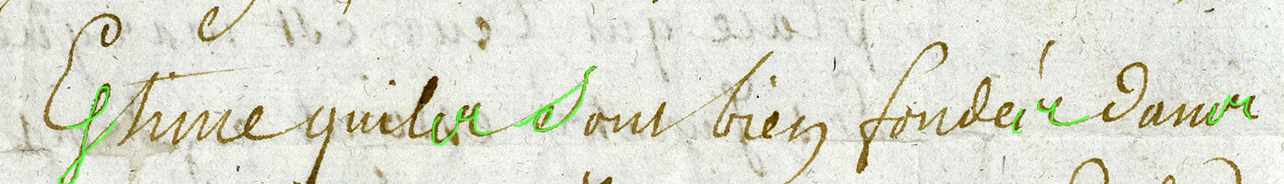 Estime quils Sont bien fondés dans